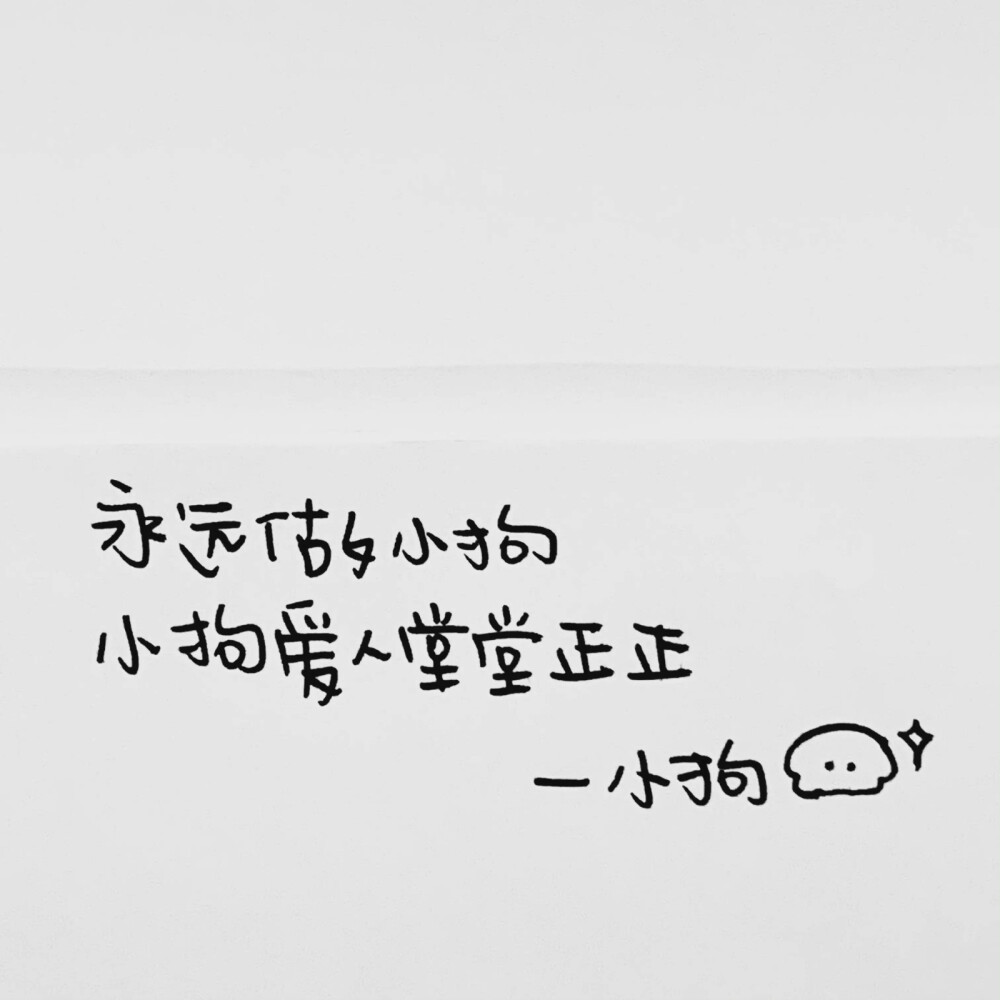 永远做小狗
小狗爱人堂堂正正
—小狗